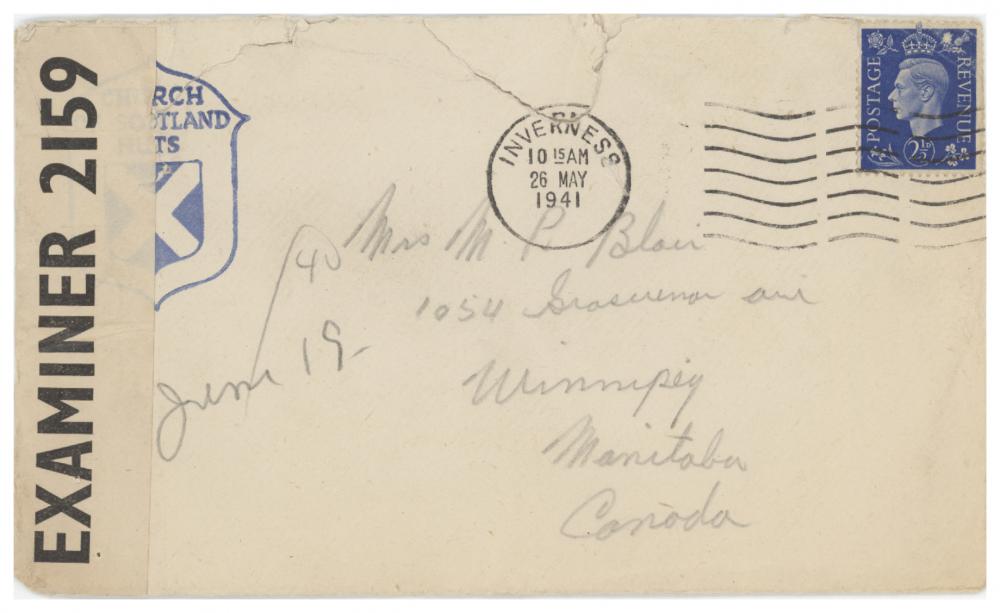 EXAMINER 2159
CHURCH
SCOTLAND
HUTS
POSTAGE
REVENUE
2½D
INVERNESS
10 15 AM
26 MAY
1941
Mrs M. R. Blair
40
1054 Grosvenor ave
June 19
Winnipeg
Manitoba
Canada